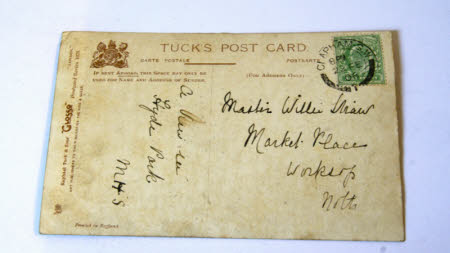 TUCK'S POST CARD.
CARTE POSTALE
POSTKARTE
IF SENT ABROAD, THIS SPACE MAY ONLY BE
USED FOR NAME AND ADDRESS OF SENDER.
(For Address Only.)
A View in
Hyde Park
MHS
Master Willie Straw
Market Place
Worksop
Notts
Raphael Tuck & Sons' "Glosso"
Printed in England
CLAPHAM